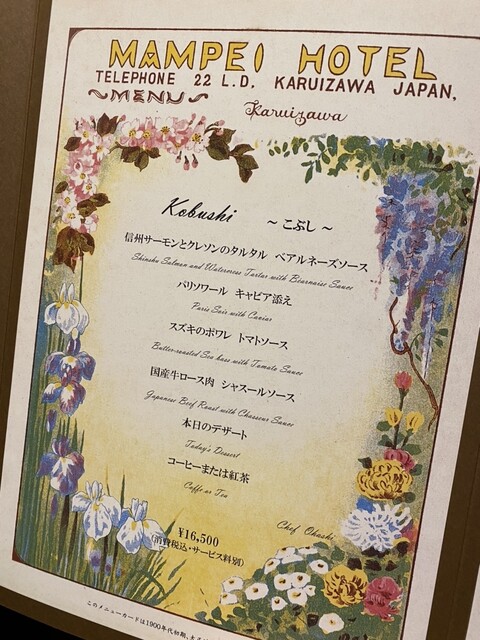 MAMPEI HOTEL
TELEPHONE 22 L.D. KARUIZAWA JAPAN,
~MENU~
Karuizawa
Kobushi ~ こぶし ~
信州サーモンとクレソンのタルタル ベアルネーズソース
Shinshu Salmon and Watercress Tartar with Bearnaise Sauce
パリソワール キャビア添え
Paris Soir with Caviar
スズキのポワレ トマトソース
Butter-roasted Sea bass with Tomato Sauce
国産牛ロース肉 シャスールソース
Japanese Beef Roast with Chasseur Sauce
本日のデザート
Today's Dessert
コーヒーまたは紅茶
Coffe or Tea
¥16,500
(消費税込・サービス料別)
Chef Ohashi
このメニューカードは1900年代初期、